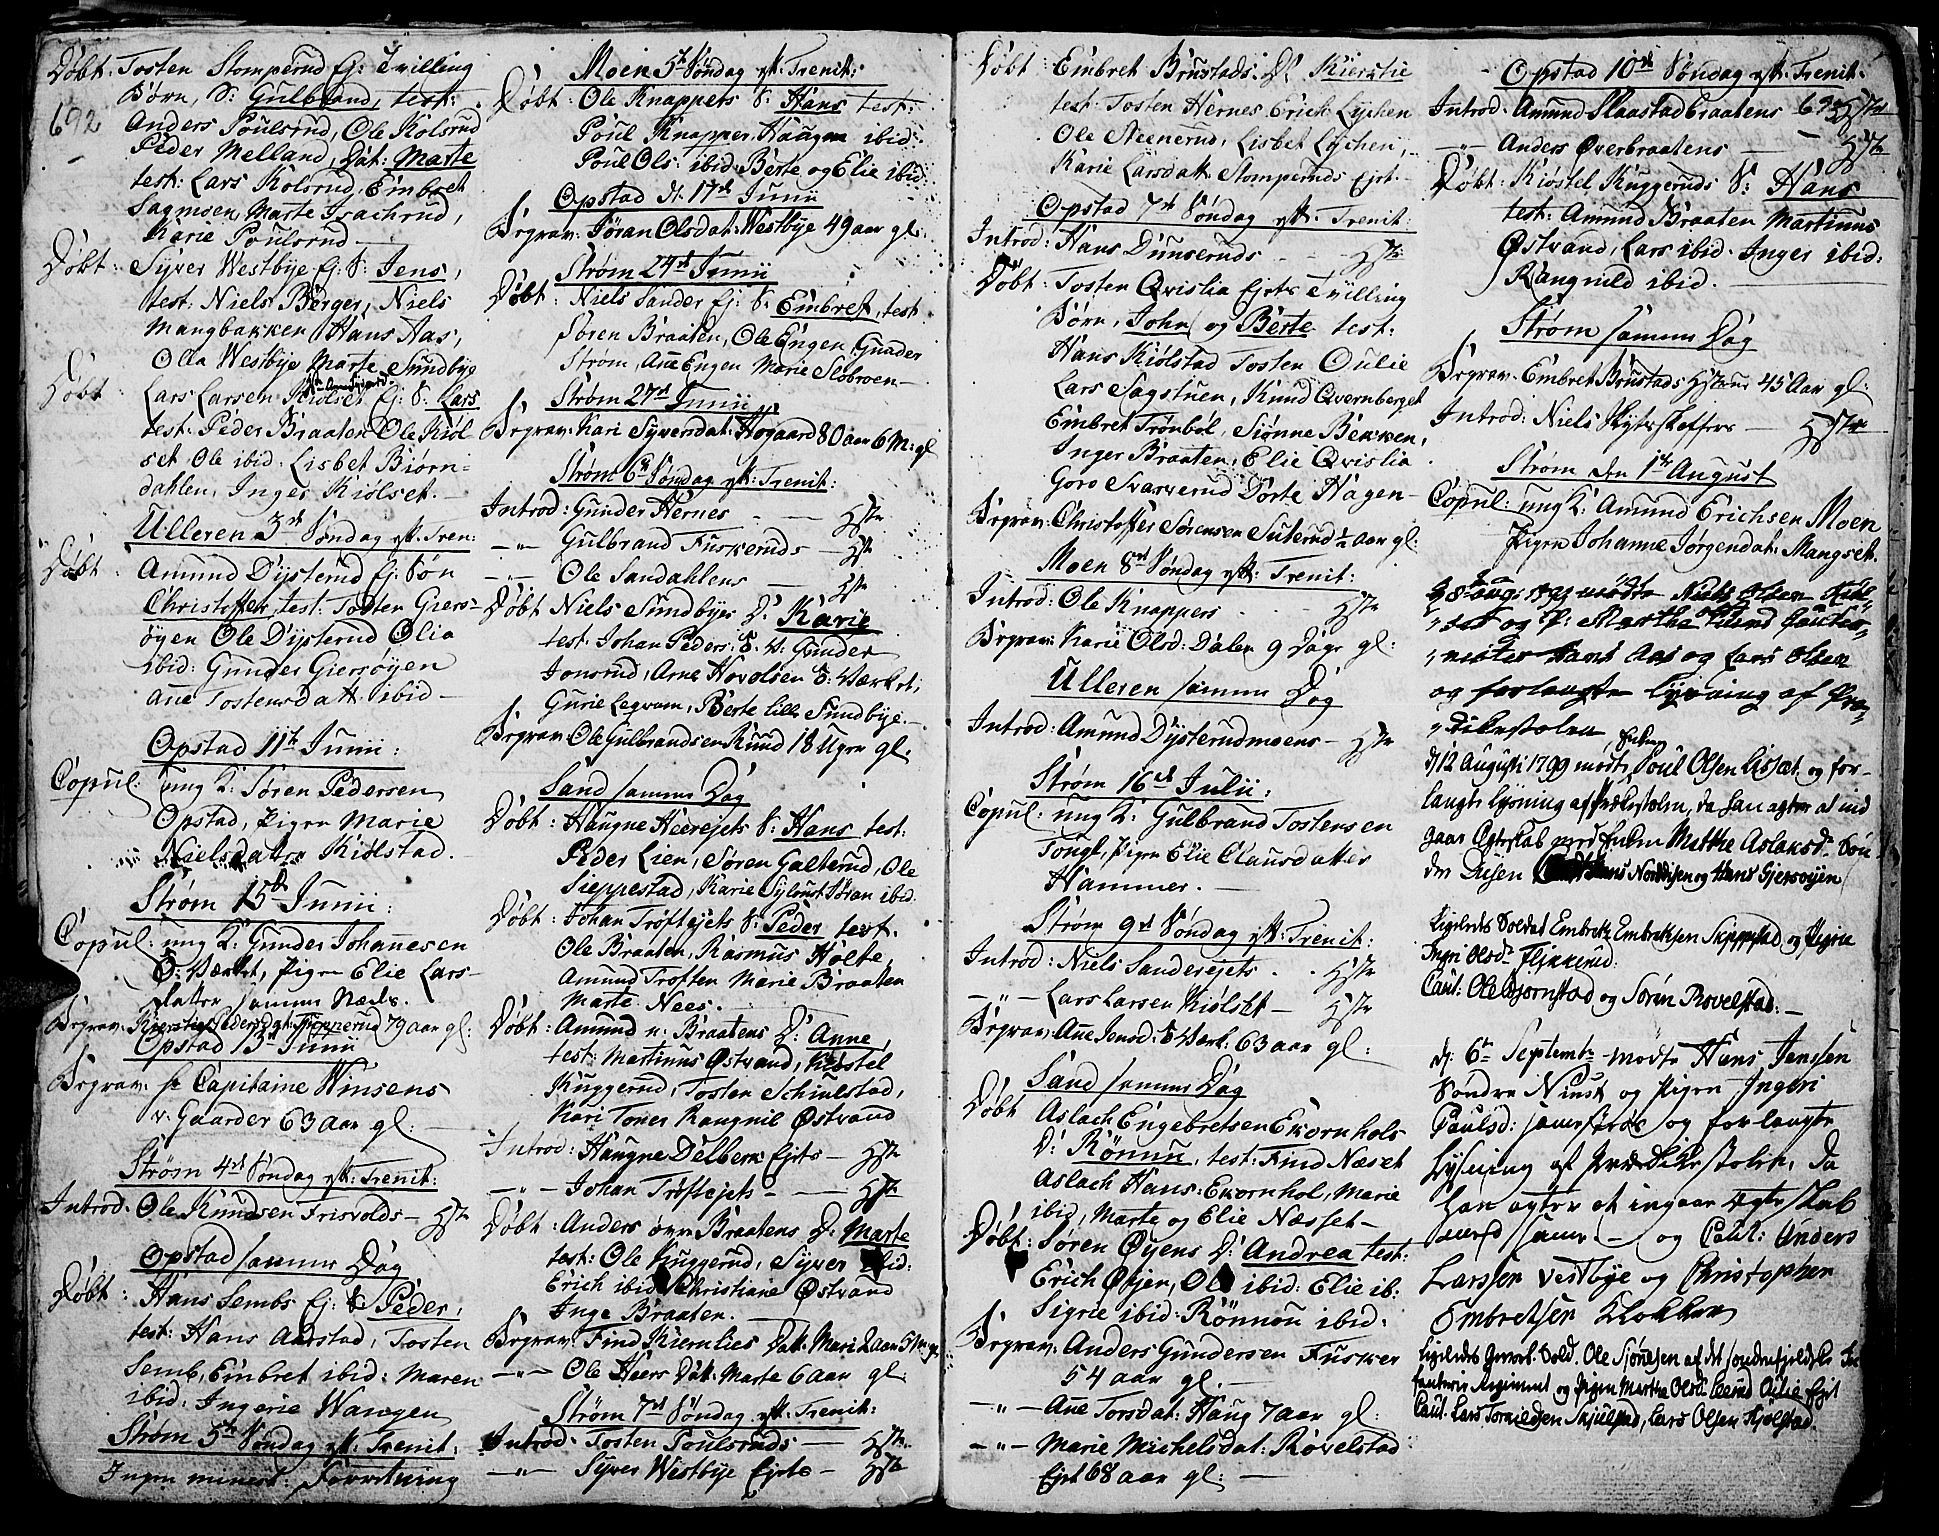 692
Døbt: Tosten Stomperud Ej: Tvilling
Børn, S: Gulbrand, test:
Anders Poulsrud, Ole Kolsrud
Peder Melland, Dat: Marte
test: Lars Kolsrud, Embret
Sagmoen, Marte Isachrud,
Karie Poulsrud —
Døbt: Syver Westbye Ej: S: Jens,
test: Niels Berger, Niels
Mangbakken Hans Aas,
Olia Westbye Marte Sundbye
Døbt Lars Larsen Kiølset Ej: S: Lars
test: Peder Braaten Ole Kiøl-
set Ole ibid: Lisbet Biørn-
dahlen, Inger Kiølset. —
Ulleren 3d Søndag eft: Tren:
Døbt Amund Dysterud Ej: Søn
Christoffer, test: Tosten Giers-
øyen Ole Dysterud Olia
ibid: Gunder Giersøyen
Ane Tostensdatt: ibid —
Opstad 11th Junii:
Copul: ung K: Søren Pedersen
Opstad, Pigen Marie
Nielsdatter Kiølstad. —
Strøm 15d Junii:
Copul: ung K: Gunder Johannesen
O: Værket, Pigen Elie Lars-
datter samme Stæds.
Begrav: Kierstie Pedersdat: 79 aar gl:
Opstad 13d Junii
Begrav: Hr Capitaine Winsens
v: Gaarder 63 aar gl: —
Strøm 4d Søndag eft: Trenit:
Introd: Ole Knudsen Frisvolds — Hstr
Opstad samme Dag
Døbt: Hans Sembs Ej: S: Peder,
test: Hans Aarstad, Tosten
Semb, Embret ibid: Maren
ibid: Ingerie Wangen
Strøm 5th Søndag eft: Trenit:
Ingen minist: Forretning
Moen 5t Søndag eft: Trenit:
Døbt: Ole Knappers S: Hans test:
Poul Knapper, Haagen ibid:
Poul Ols: ibid: Berte og Elie ibid:
Opstad d: 17d Junii
Begrav: Jøran Olsdat: Westbye 49 aar gl:
Strøm 24d Junii
Døbt: Niels Sander Ej: S: Embret, test
Søren Braaten, Ole Engen Gunder
Strøm, Ane Engen Marie Slobroen —
Strøm 27d Junii
Begrav: Kari Syversdat: Hogaard 80 aar 6 M: gl
Strøm 6d Søndag eft: Trenit:
Introd: Gunder Hernes — Hstr
—"— Gulbrand Fuskeruds — Hstr
—"— Ole Sandahlens — Hstr
Døbt Niels Sundbyes D: Karie
test: Johan Peders: O: V: Gunder
Jonsrud, Arne Hovolsen O: Værket,
Gurie Legram, Berte lille Sundbye. —
Begrav: Ole Gulbrandsen Ruud 18 Uger gl.
Sand samme Dag
Døbt: Haagne Heerejets S: Hans test:
Peder Lien, Søren Galterud, Ole
Sieppestad, Karie Sylrust Jøran ibid.
Døbt: Johan Trøftejets S: Peder test:
Ole Braaten, Rasmus Holte,
Amund Troften Marie Braaten
Marte Nees.
Døbt: Amund n: Braatens D: Anne,
test: Martinus Østvand, Kiøstel
Kuggerud, Tosten Schiulstad,
Kari Toner Rangnil Østvand
Introd: Haagne Delbere Ejets — Hstr
—"— Johan Trøftejets — Hstr
Døbt: Anders øvre Braatens D: Marte
test: Ole Kuggerud, Syver ibid:
Erich ibid: Christiane Østvand
Inge Braaten.
Begrav: Find Kiernlies Datt: Mari 2 aar 5 M gl
—"— Ole Heers Dat: Marte 6 aar gl:
Strøm 7d Søndag eft: Trenit:
Introd: Tosten Poulsruds — Hstr
—"— Syver Westbye Ejets — Hstr
Døbt: Embret Brustads: D: Kierstie
test: Tosten Hernes Erich Lychen
Ole Steenerud, Lisbet Lychen,
Karie Larsdatt: Stomperuds Ejet —
Opstad 7d Søndag eft: Trenit:
Introd: Hans Dunseruds — Hstr
Døbt: Tosten Qvislia Ejets Tvilling
Børn, John og Berte test:
Hans Kiølstad Tosten Oulie
Lars Sagstuen, Knud Qvernberget
Embret Trønbøl, Siønne Bekken,
Inger Braaten, Elie Qvislia
Goro Svarverud Dorte Hagen —
Begrav: Christoffer Sørensen Suterud ½ aar gl:
Moen 8d Søndag eft: Trenit:
Introd: Ole Knappers — Hstr
Begrav: Karie Olsd: Dalen 9 Dage gl:
Ulleren samme Dag
Introd: Amund Dysterudmoens — Hstr
Strøm 16d Julii:
Copul: ung K: Gulbrand Tostensen
Tongl, Pigen Elie Clausdatter
Hammer. —
Strøm 9d Søndag eft: Trenit:
Introd: Niels Sanderejets — Hstr
—"— Lars Larsen Kiølset — Hstr
Begrav: Ane Jonsd: O Værk: 63 aar gl:
Sand samme Dag
Døbt Aslach Engebretsen Ekornhols
D: Rønnu, test: Find Næset
Aslach Hans: Ekornhol, Marie
ibid, Marte og Elie Næsset —
Døbt: Søren Øyens D: Andrea test:
Erich Øyen, Ole ibid: Elie ib:
Sigrie ibid: Rønnou ibid:
Begrav: Anders Gundersen Fusker
54 aar gl. —
—"— Ane Torsdat: Haug 7 aar gl:
—"— Marie Michelsdat: Rovelstad
Ejet 68 aar gl: —
Opstad 10d Søndag eft: Trenit:
Introd: Amund Slaastadbraatens 692 Hstr
—"— Anders Øverbraatens — Hstr
Døbt: Kiøstel Kuggeruds S: Hans
test: Amund Braaten Martinus
Østvand, Lars ibid: Inger ibid:
Rangnild ibid.
Strøm samme Dag
Begrav: Embret Brustads Hstrue 45 Aar gl:
Introd: Niels Skytskaffers — Hstr
Strøm den 1ste August
Copul: ung K: Amund Erichsen Moen
Pigen Johanne Jørgendat: Mangset.
og forlangte lysning af Præ-
dikestolen,
d 12 Augusti 1799 mødte Enkem Poul Olsen Lisset og for-
langte lysning af Prækestolen, da han agter at ind
gaae Egteskab med Enken Marthe Aslaksd: Søn-
dre Dusen Nordisen og Hans Gjersøyen
Ligeledes Soldat Embret Embretsen Skeppstad og Pigen
Ingri Olsd: Flikkerud:
Caut: Ole Bjørnstad og Søren Rovelstad: —
d: 6te Septembr mødte Hans Jenssen
Søndre Niust og Pigen Ingeri
Paulsd: sammestæds og forlangte
Lysning af Prædikestolen, da
han agter at ingaae Egteskab
med samme — og Caut: Anders
Larssen Vestbye og Christopher
Embretsen Klokker
Ligeledes Geworb: Sold. Ole Siønesen af det søndenfieldske In
fanterie Regiment og Pigen Marthe Olsd: Oulie Ejet
Caut: Lars Torkildsen Skjulstad, Lars Olsen Kjølstad.